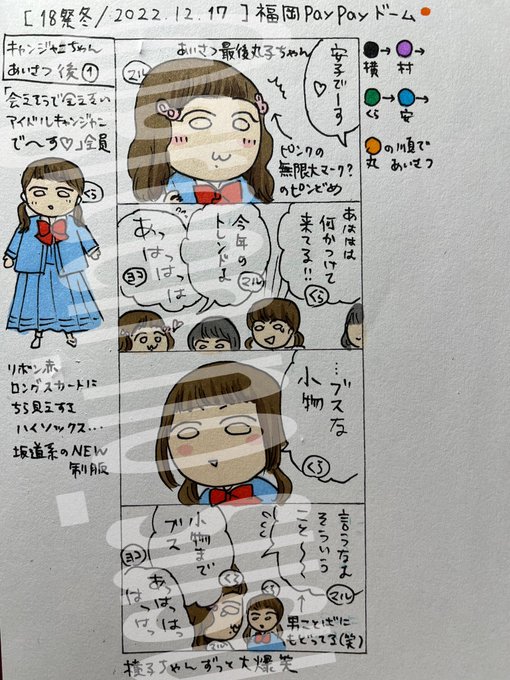 [ 18祭冬/2022.12.17 ] 福岡PayPayドーム
キャンジャニちゃん
あいさつ 後①
「会えそうで会えない
アイドルキャンジャニ
で〜す♡」全員
くら
リボン赤
ロングスカートに
ちら見えする
ハイソックス…
坂道系のNEW
制服
あいさつ最後丸子ちゃん
マル
安子でーす
♡
ピンクの
無限大マーク?
のピンどめ
→ → 
横 村
→ →
くら 安
の順で
丸 あいさつ
あははは
何かつけて
来てる!!
くら
今年の
トレンドよ
マル
あっ
はっ
はっはは
ヨコ
…ブスな
小物
くら
言う方よ
そういう
こと〜〜
マル
小物まで
ブス
ヨコ
くら
くら
あっはっはっ
はっはっ
男ことばに
もどってる(笑)
横子ちゃんずっと大爆笑